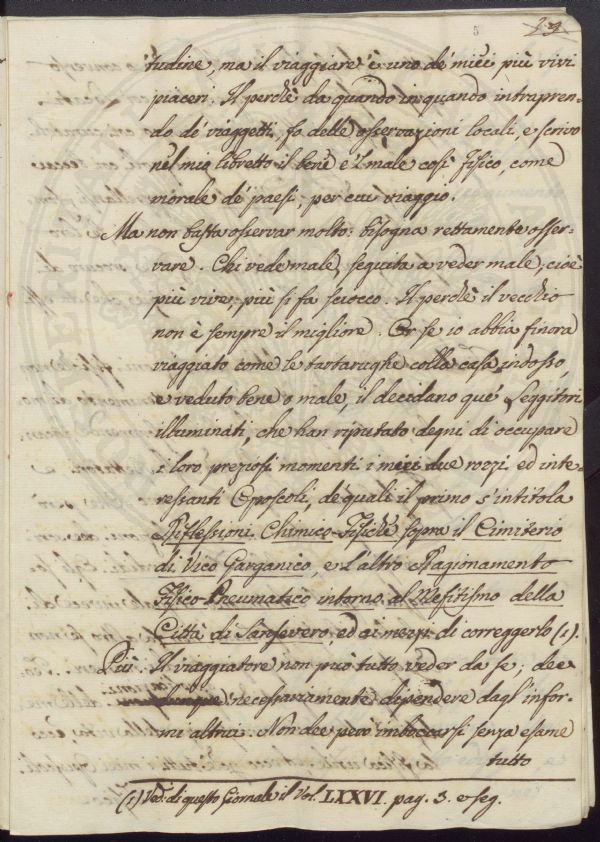 5 29
itudine, ma il viaggiare è uno de' miei più vivi
piaceri. Il perchè da quando in quando intrapren-
do de' viaggetti, fo delle osservazioni locali, e scrivo
nel mio libretto il bene e 'l male così fisico, come
morale de' paesi, per cui viaggio.
Ma non basta osservar molto: bisogna rettamente osser-
vare. Chi vede male, seguita a veder male; cioè
più vive, più si fa sciocco. Il perchè il vecchio
non è sempre il migliore. Or se io abbia finora
viaggiato come le tartarughe colla casa indosso,
e veduto bene o male, il decidano que' Leggitori
illuminati, che han riputato degni di occupare
i loro preziosi momenti i miei due rozzi ed inte-
ressanti Opuscoli, de' quali il primo s'intitola
Riflessioni Chimico-Fisiche sopra il Cimiterio
di Vico Garganico, e l'altro Ragionamento
Fisico-Pneumatico intorno al Mefitismo della
Città di Sansevero, ed ai mezzi di correggerlo (1).
Più Il viaggiatore non può tutto veder da se; dee
necessariamente dipendere dagl' infor-
mi altrui. Non dee però imboccarsi senza esame
tutto
(1) Ved. di questo Giornale il Vol. LXXVI. pag. 3. e seg.